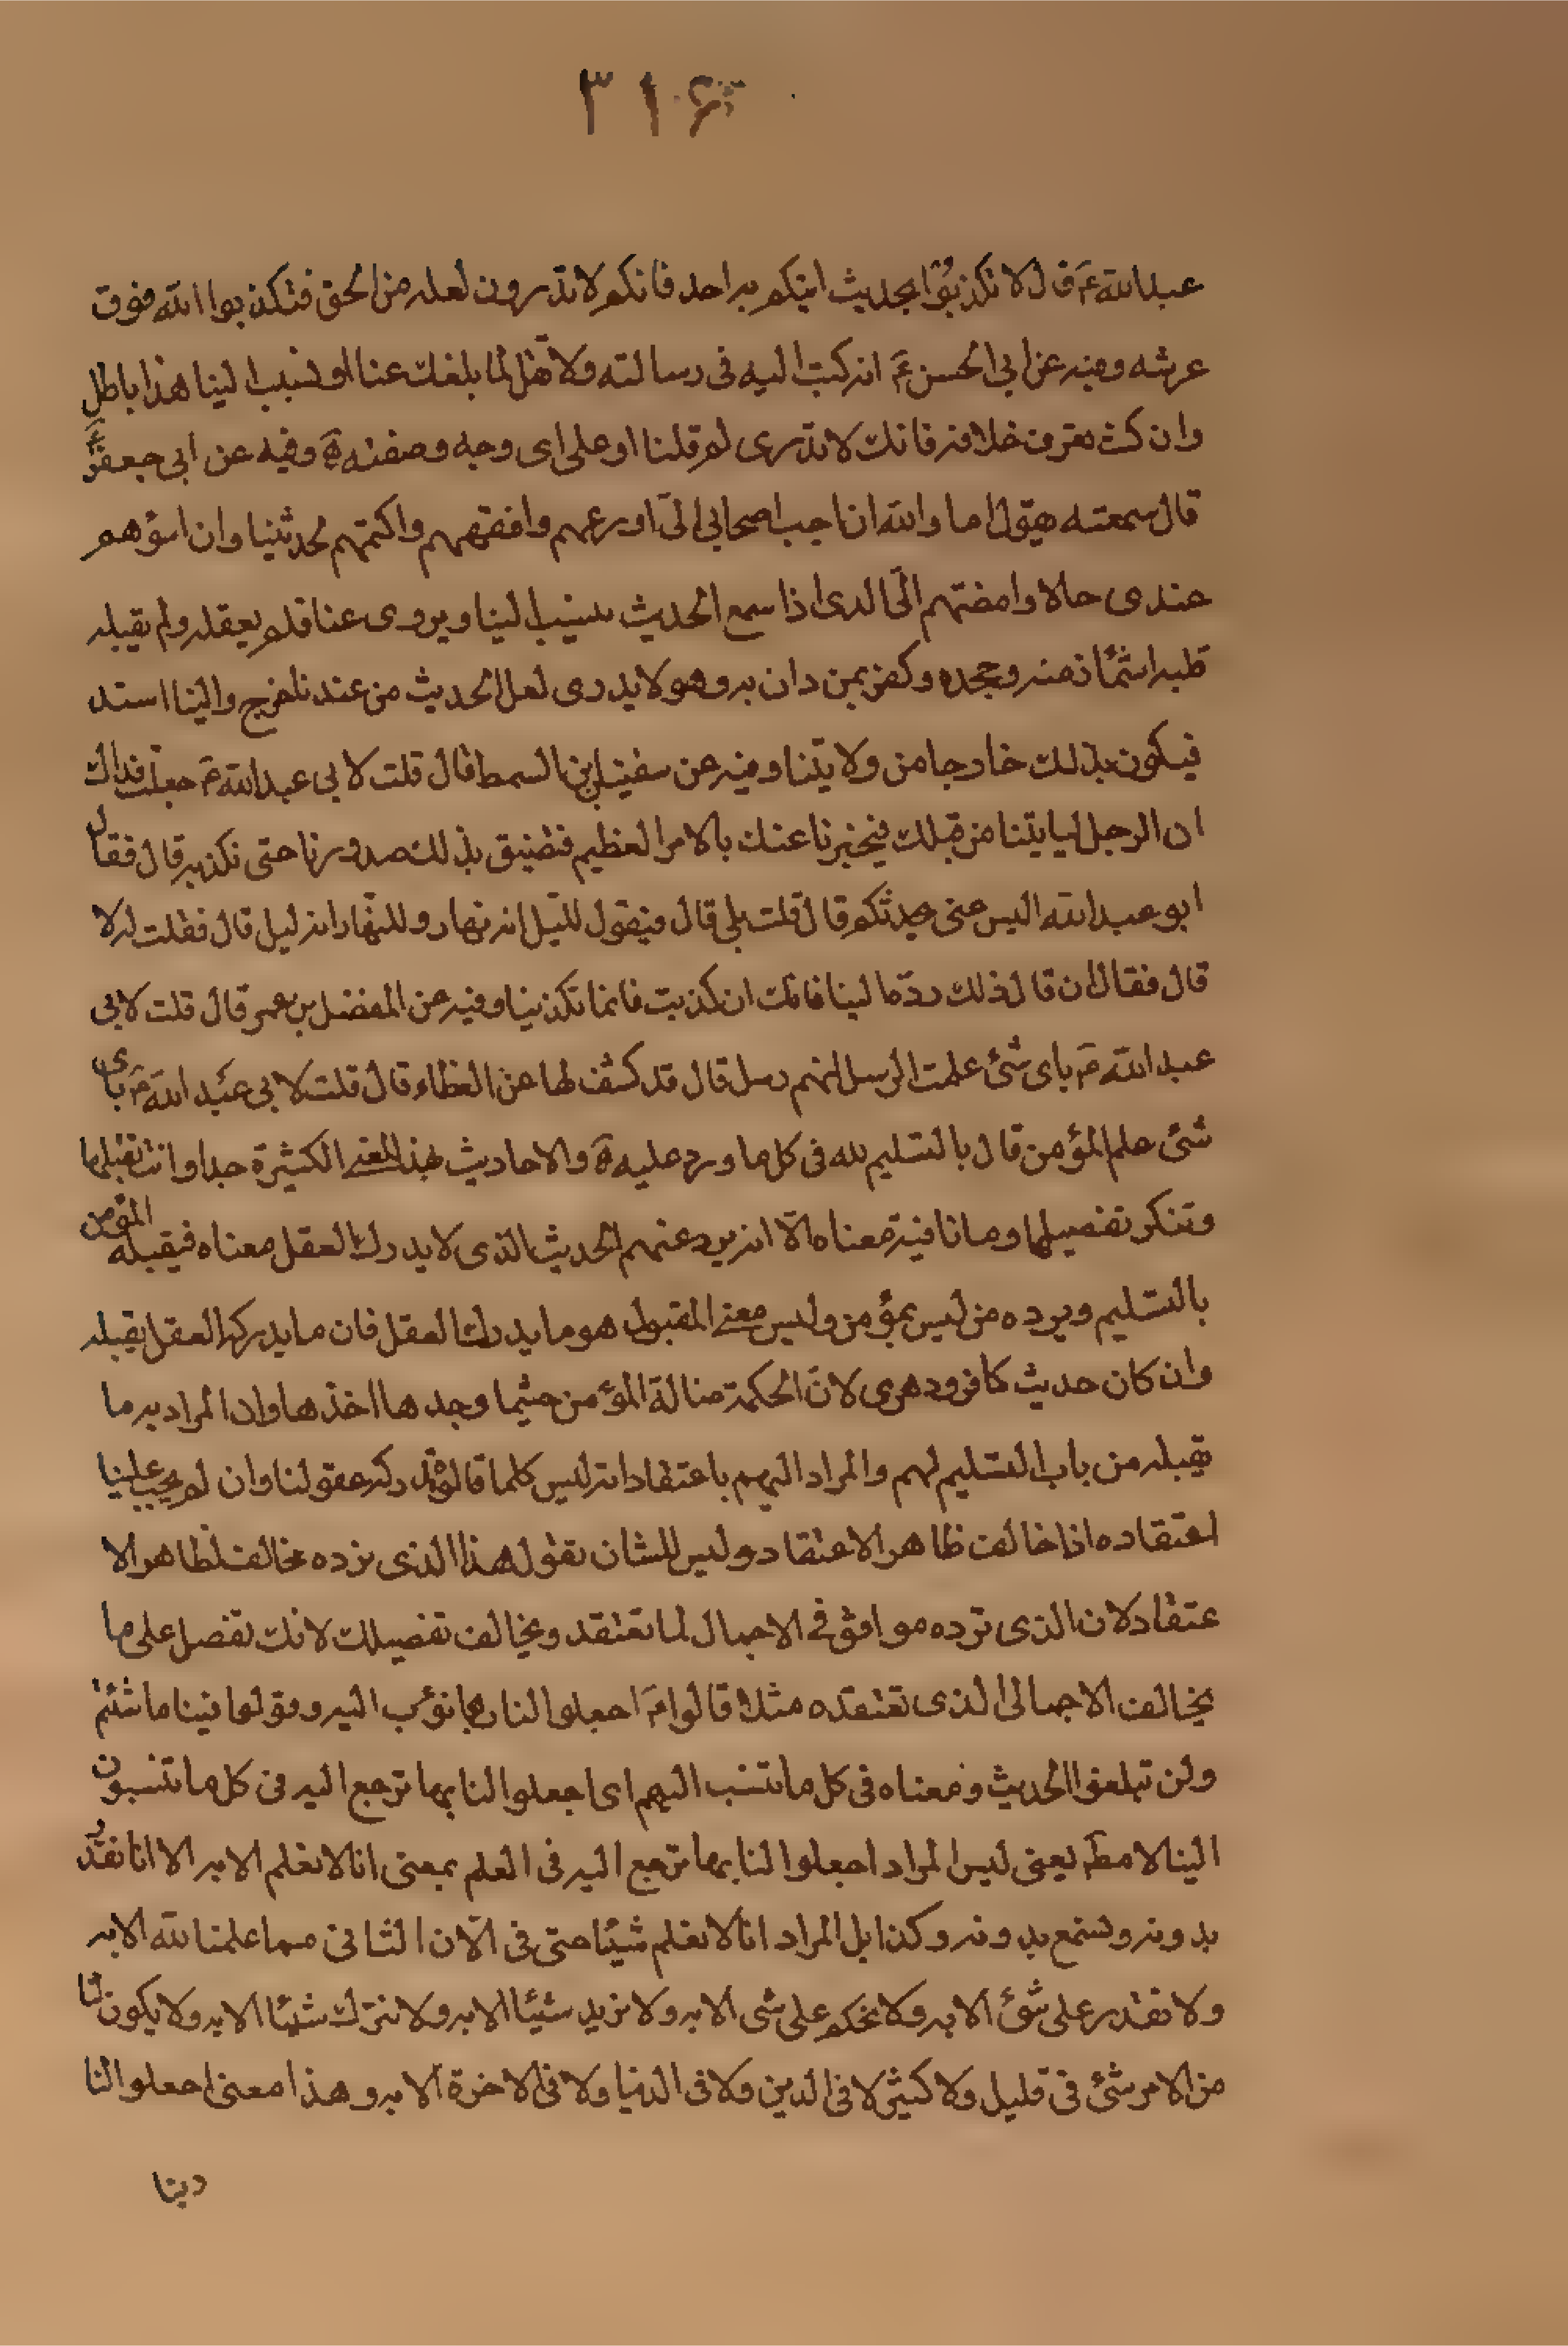 ٣١٤
عبد الله ع قال لا تكذبوا بحديث اتيكم به احد فانكم لا تدرون لعله من الحق فتكذبوا الله فوق
عرشه وفيه عن ابي الحسن ع انه كتب اليه في رسالته ولا تقل لما بلغك عنا او نسب الينا هذا باطل
وان كنت تعرف خلافه فانك لا تدرى لم قلنا او على اى وجه وصفته ة وفيه عن ابى جعفر ع
قال سمعته يقول اما والله ان احب اصحابي الىّ اورعهم وافقههم واكتمهم لحديثنا وان اسؤهم
عندى حالا وامقتهم الىّ الذى اذا سمع الحديث ينسب الينا ويروى عنا فلم يعقله ولم يقبله
قلبه اشمئاز منه وجحده وكفر بمن دان به وهو لا يدرى لعل الحديث من عندنا خرج والينا اسند
فيكون بذلك خارجا من ولايتنا وفيه عن سفيان بن السمط قال قلت لابى عبد الله ع جعلت فداك
ان الرجل لياتينا من قبلك فيخبرنا عنك بالامر العظيم فتضيق بذلك صدورنا حتى نكذبه قال فقال
ابو عبد الله اليس عنى يحدثكم قال قلت بلى قال فيقول لليل انه نهار وللنهار انه ليل قال فقلت له لا
قال فقال ان قال ذلك ردّه الينا فانك ان كذبت فانما تكذبنا وفيه عن المفضل بن عمر قال قلت لابى
عبد الله ع باى شئ علمت الرسل انهم رسل قال قد كشف لها عن الغطاء قال قلت لابى عبد الله ع باى
شئ علم المؤمن قال بالتسليم لله فى كل ما ورد عليه ة والاحاديث بهذا المعنى الكثيرة جدا وانت تقبلها
وتنكر تفصيلها وما نافية معناه الّا انه يرد عنهم الحديث الذى لا يدرك العقل معناه فيقبله المؤمن
بالتسليم ويرده من ليس بمؤمن وليس معنى المقبول هو ما يدرك العقل فان ما يدركه العقل يقبله
وان كان حديث كافر ودهرى لانّ الحكمة ضالة المؤمن حيثما وجدها اخذها وان المراد به ما
يقبله من باب التسليم لهم والمراد اليهم باعتقاد انه ليس كلما قالوه تدركه عقولنا وان لم يجب علينا
اعتقاده اذا خالف ظاهر الاعتقاد وليس للشان تقول هذا الذى نرده مخالف لظاهر الا
عتقاد لان الذى ترده موافق فى الاجمال لما تعتقد ويخالف تفصيلك لانك تفصل على ما
يخالف الاجمالى الذى تعتقده مثلا قالوا ع اجعلوا لنا ربا نؤب اليه وقولوا فينا ما شئتم
ولن تبلغوا الحديث ومعناه فى كل ما تنسب اليهم اى اجعلوا لنا ربا نرجع اليه فى كل ما تنسبون
الينا لا مطلقا يعنى ليس المراد اجعلوا لنا ربا نرجع اليه فى العلم بمعنى انا لا نعلم الا به الا انا نقدر
بدونه ونسمع بدونه وكذا بل المراد انا لا نعلم شيئا حتى فى الآن الثانى مما علمنا لله الا به
ولا نقدر على شئ الا به ولا نحكم على شى الا به ولا نزيد شيئا الا به ولا نترك شيئا الا به ولا يكون لنا
من الامر شئ فى قليل ولا كثير لا فى الدين ولا فى الدنيا ولا فى الاخرة الا به وهذا معنى اجعلوا لنا
دينا